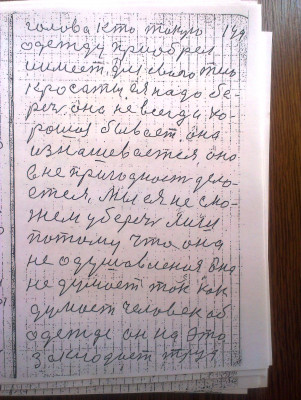 голова кто такую 144
одежду приобрел
и имеет для своего тию
красоты ея надо бе-
речь. она не всегда хо-
рошая бывает. она
изнашевается оно
в не пригодност дело-
ется, мы ея не смо-
жем уберечь лиш
потому что она
не одушавления она
не думает так как
думает человек об
одежде он на это
закладает труд